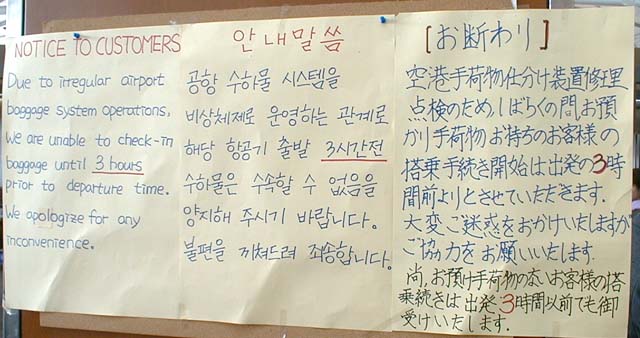 NOTICE TO CUSTOMERS
Due to irregular airport
baggage system operations,
we are unable to check-in
baggage until 3 hours
prior to departure time.
We apologize for any
inconvenience.
안내말씀
공항 수하물 시스템을
비상체제로 운영하는 관계로
해당 항공기 출발 3시간전
수하물은 수속할 수 없음을
양지해 주시기 바랍니다.
불편을 끼쳐드려 죄송합니다.
[お断わり]
空港手荷物仕分け装置修理
点検のため,しばらくの間お預
かり手荷物お持ちのお客様の
搭乗手続き開始は出発の3時
間前よりとさせていただきます.
大変ご迷惑をおかけいたしますが
ご協力をお願いいたします.
尚,お預け手荷物の無いお客様の搭
乗続きは出発3時間以前でも御
受けいたします.